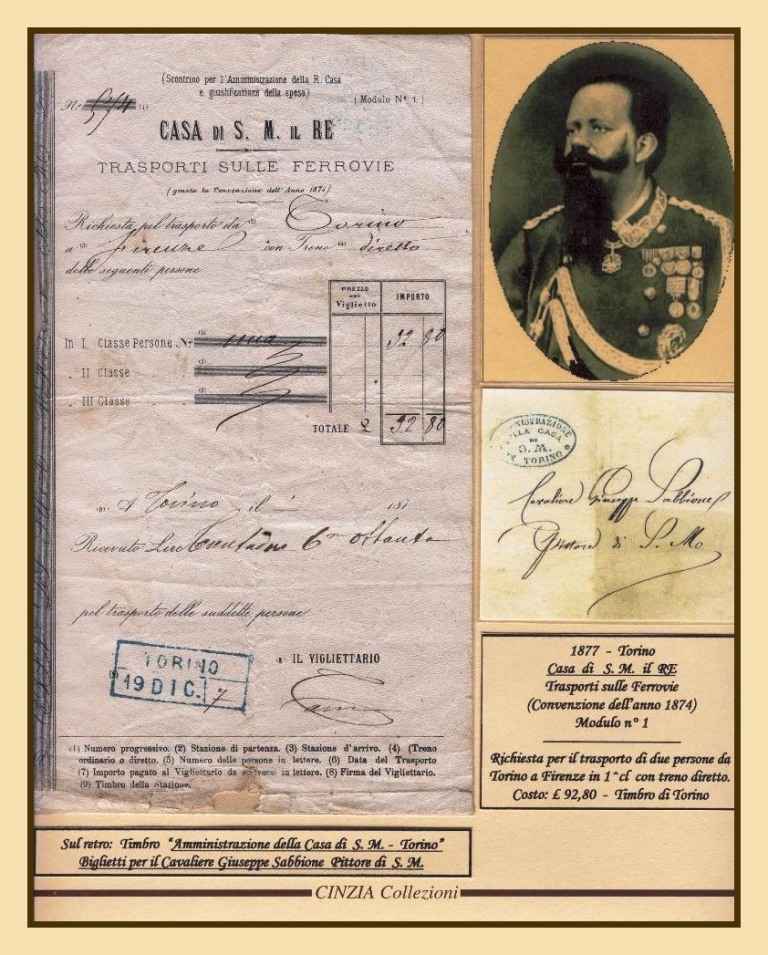 (Scontrino per l'Amministrazione della R. Casa
e giustificazione della spesa)
No 574 (1)
(Modulo No. 1.)
CASA DI S. M. IL RE
TRASPORTI SULLE FERROVIE
(giusta la Convenzione dell'Anno 1874)
Richiesta pel trasporto da (2) Torino
a (3) Firenze con Treno (4) diretto
delle seguenti persone
PREZZO
Viglietto
IMPORTO
In I Classe Persone No (5) una 92 80
" II Classe " "
" III Classe " "
TOTALE £ 92 80
(6) A Torino il 187
Ricevute Lire ottanta
pel trasporto delle suddette persone.
TORINO
19 DIC. 7
(8) IL VIGLIETTARIO
(1) Numero progressivo. (2) Stazione di partenza. (3) Stazione d'arrivo. (4) (Treno
ordinario o diretto. (5) Numero delle persone in lettere. (6) Data del Trasporto
(7) Importo pagato al Vigliettario da scriversi in lettere. (8) Firma del Vigliettario.
(9) Timbro della Stazione.
AMMINISTRAZIONE
DELLA CASA
DI
S. M.
TORINO
Cavaliere Giuseppe Sabbione
Pittore di S. M.
1877 - Torino
Casa di S. M. il RE
Trasporti sulle Ferrovie
(Convenzione dell'anno 1874)
Modulo n° 1
Richiesta per il trasporto di due persone da
Torino a Firenze in 1^cl con treno diretto.
Costo: £ 92,80 - Timbro di Torino
Sul retro: Timbro "Amministrazione della Casa di S. M. - Torino"
Biglietti per il Cavaliere Giuseppe Sabbione Pittore di S. M.
CINZIA Collezioni